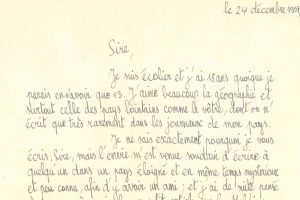 le 24 décembre 1959
Sire,
Je suis écolier et j'ai 18 ans quoique je
parais en avoir que 13. J'aime beaucoup la géographie et
surtout celle des pays lointains comme le vôtre, dont on n'
écrit que très rarement dans les journaux de mon pays.
Je ne sais exactement pourquoi je vous
écris, Sire, mais l'envie m'est venue soudain d'écrire à
quelqu'un dans un pays éloigné et en même temps mystérieux
et peu connu, afin d'y avoir un ami ; et j'ai de suite pensé